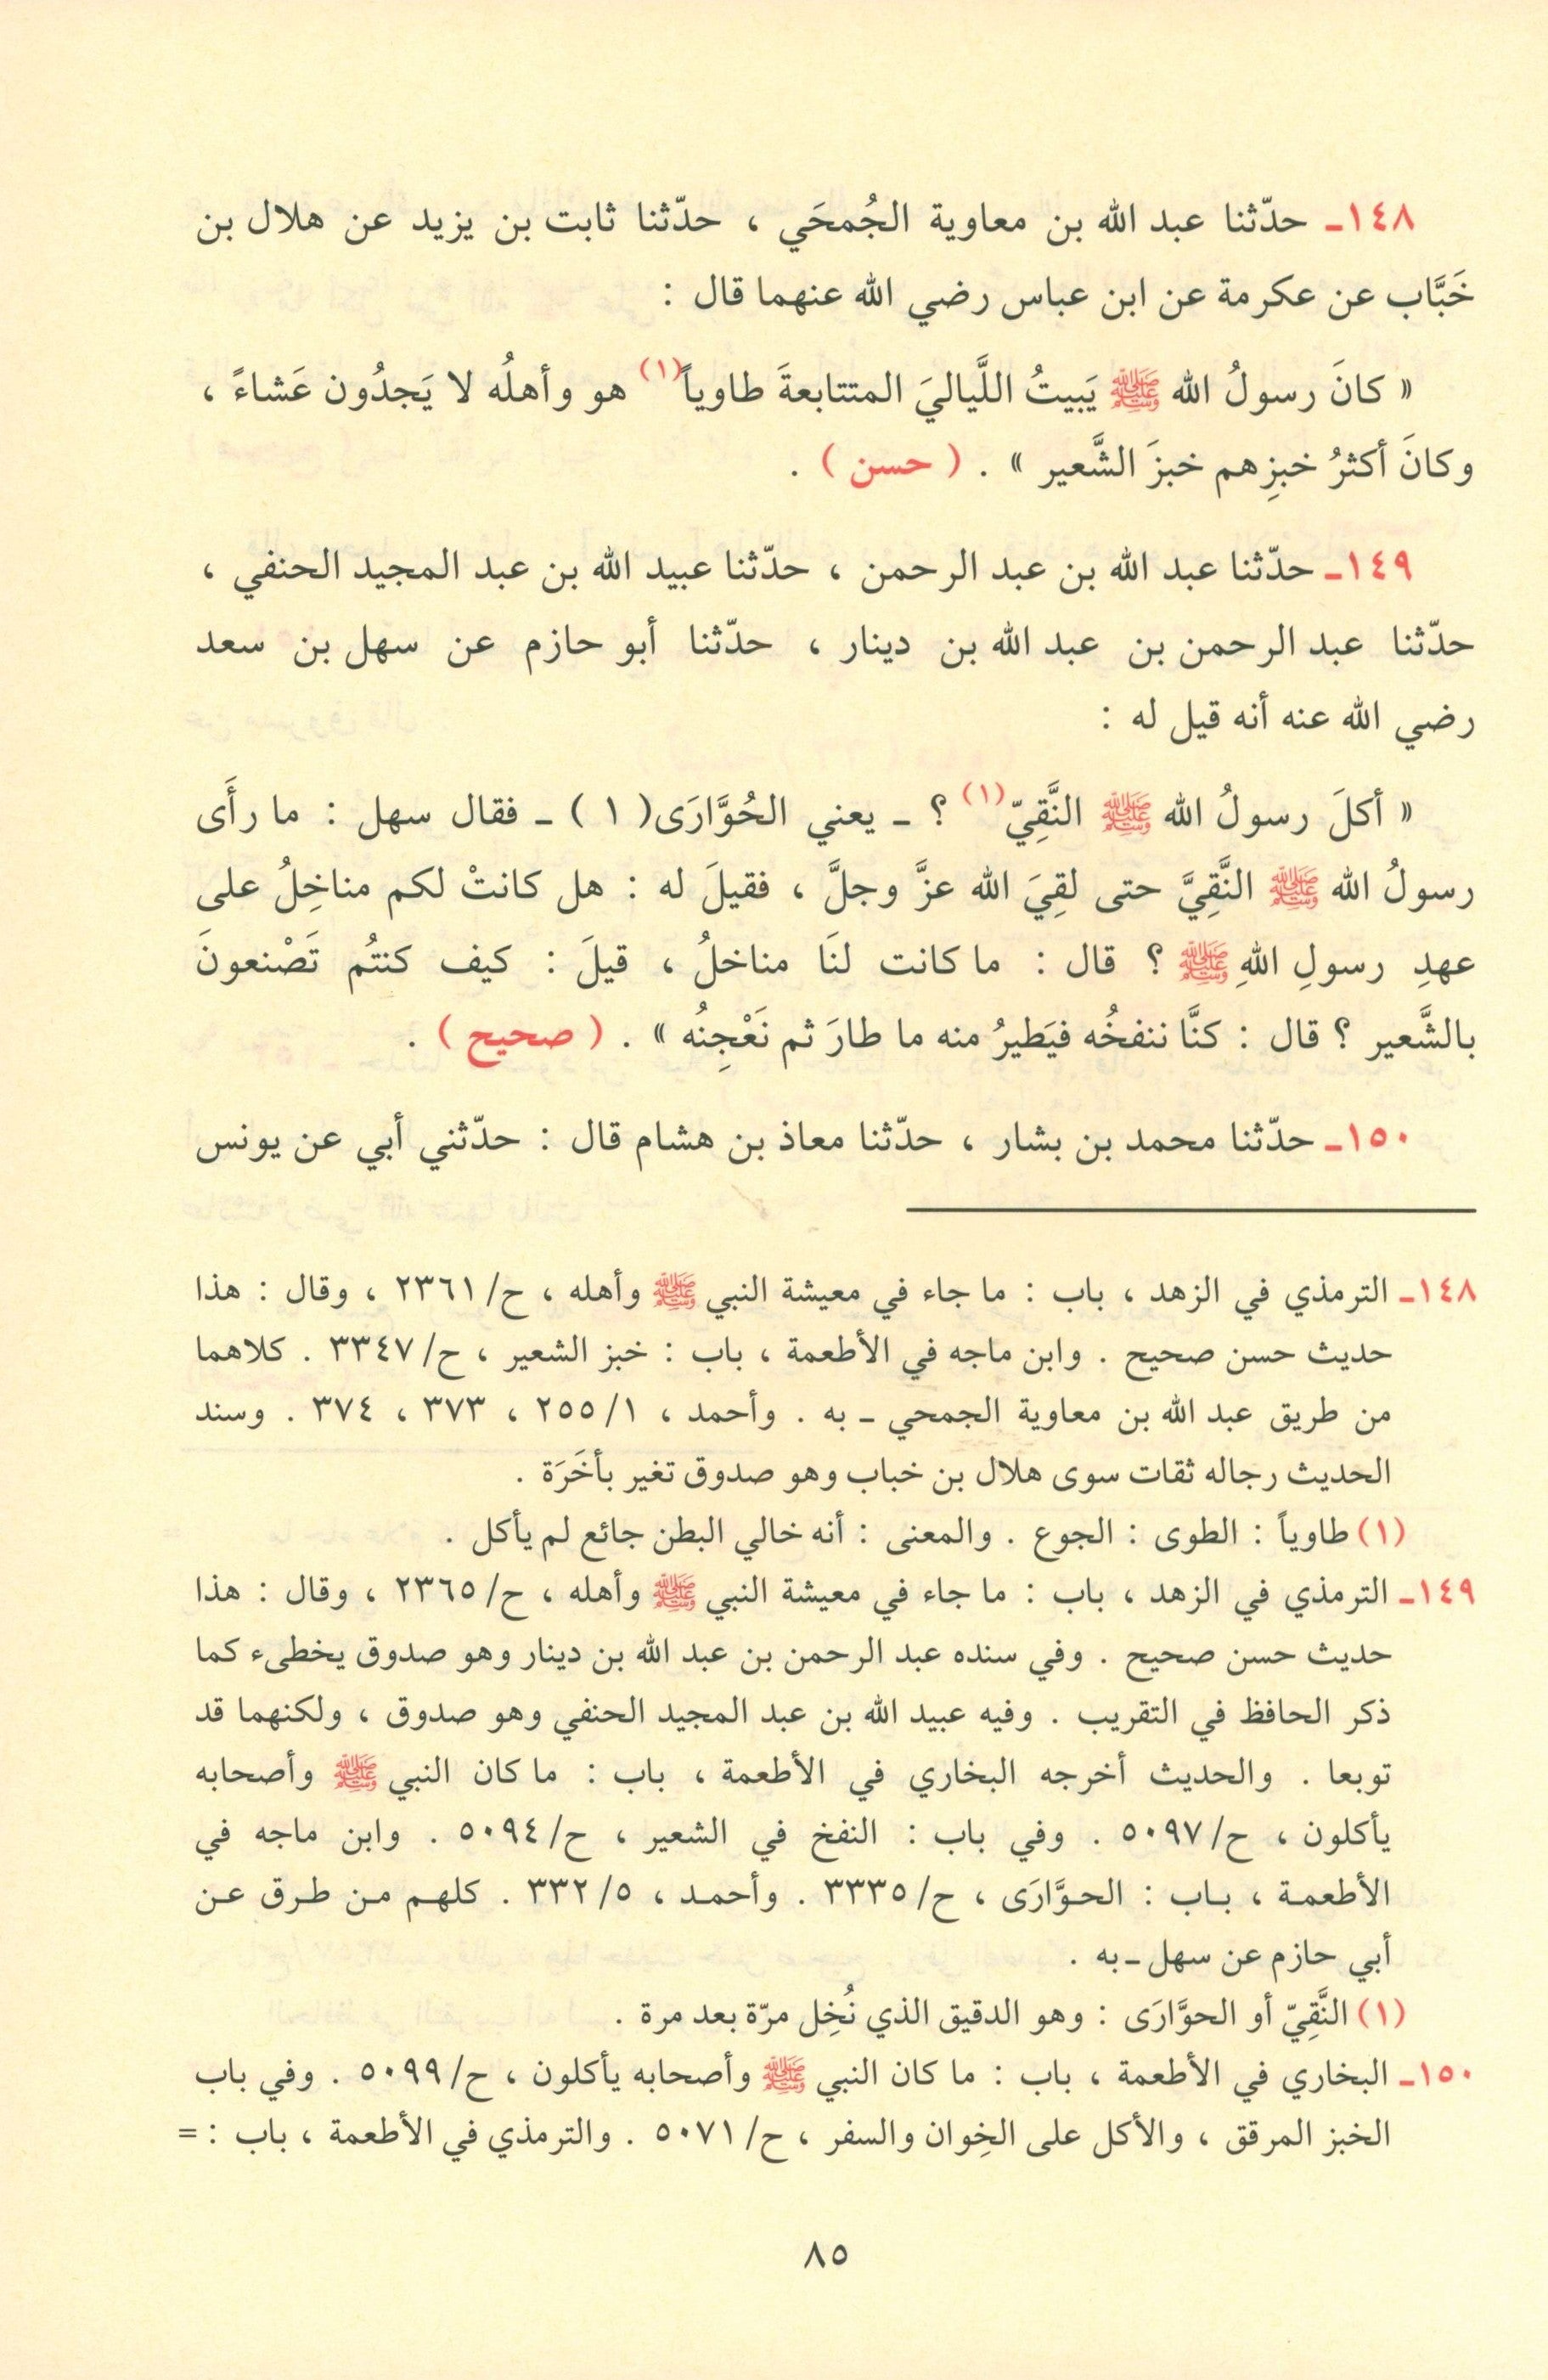 ١٤٨ـ حدّثنا عبد الله بن معاوية الجُمحَي ، حدّثنا ثابت بن يزيد عن هلال بن
خَبَّاب عن عكرمة عن ابن عباس رضي الله عنهما قال :
« كانَ رسولُ الله ﷺ يَبيتُ اللَّياليَ المتتابعةَ طاوياً(١) هو وأهلُه لا يَجدُون عَشاءً ،
وكانَ أكثرُ خبزِهم خبزَ الشَّعير » . ( حسن ) .
١٤٩ـ حدّثنا عبد الله بن عبد الرحمن ، حدّثنا عبيد الله بن عبد المجيد الحنفي ،
حدّثنا عبد الرحمن بن عبد الله بن دينار ، حدّثنا أبو حازم عن سهل بن سعد
رضي الله عنه أنه قيل له :
« أكلَ رسولُ الله ﷺ النَّقِيّ(١) ؟ ـ يعني الحُوَّارَى( ١ ) ـ فقال سهل : ما رأَى
رسولُ الله ﷺ النَّقِيَّ حتى لقِيَ الله عزَّ وجلَّ ، فقيلَ له : هل كانتْ لكم مناخِلُ على
عهدِ رسولِ اللهِ ﷺ ؟ قال : ما كانت لنَا مناخلُ ، قيلَ : كيف كنتُم تَصْنعونَ
بالشَّعير ؟ قال : كنَّا ننفخُه فيَطيرُ منه ما طارَ ثم نَعْجِنُه » . ( صحيح ) .
١٥٠ـ حدّثنا محمد بن بشار ، حدّثنا معاذ بن هشام قال : حدّثني أبي عن يونس
١٤٨ـ الترمذي في الزهد ، باب : ما جاء في معيشة النبي ﷺ وأهله ، ح/ ٢٣٦١ ، وقال : هذا
حديث حسن صحيح . وابن ماجه في الأطعمة ، باب : خبز الشعير ، ح/ ٣٣٤٧ . كلاهما
من طريق عبد الله بن معاوية الجمحي ـ به . وأحمد ، ١/ ٢٥٥ ، ٣٧٣ ، ٣٧٤ . وسند
الحديث رجاله ثقات سوى هلال بن خباب وهو صدوق تغير بأخَرَة .
(١) طاوياً : الطوى : الجوع . والمعنى : أنه خالي البطن جائع لم يأكل .
١٤٩ـ الترمذي في الزهد ، باب : ما جاء في معيشة النبي ﷺ وأهله ، ح/ ٢٣٦٥ ، وقال : هذا
حديث حسن صحيح . وفي سنده عبد الرحمن بن عبد الله بن دينار وهو صدوق يخطىء كما
ذكر الحافظ في التقريب . وفيه عبيد الله بن عبد المجيد الحنفي وهو صدوق ، ولكنهما قد
توبعا . والحديث أخرجه البخاري في الأطعمة ، باب : ما كان النبي ﷺ وأصحابه
يأكلون ، ح/ ٥٠٩٧ . وفي باب : النفخ في الشعير ، ح/ ٥٠٩٤ . وابن ماجه في
الأطعمة ، باب : الحوَّارَى ، ح/ ٣٣٣٥ . وأحمد ، ٥/ ٣٣٢ . كلهم من طرق عن
أبي حازم عن سهل ـ به .
(١) النَّقِيّ أو الحوَّارَى : وهو الدقيق الذي نُخِل مرّة بعد مرة .
١٥٠ـ البخاري في الأطعمة ، باب : ما كان النبي ﷺ وأصحابه يأكلون ، ح/ ٥٠٩٩ . وفي باب
الخبز المرقق ، والأكل على الخِوان والسفر ، ح/ ٥٠٧١ . والترمذي في الأطعمة ، باب : =
٨٥